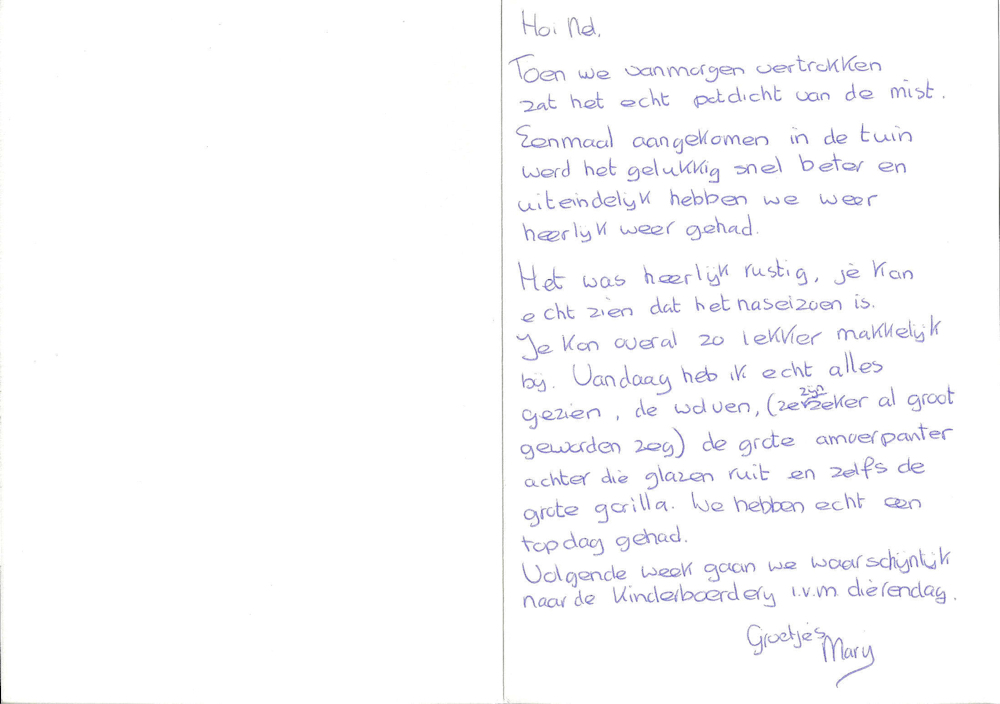 Hoi Nel,
Toen we vanmorgen vertrokken
zat het echt potdicht van de mist.
Eenmaal aangekomen in de tuin
werd het gelukkig snel beter en
uiteindelijk hebben we weer
heerlijk weer gehad.
Het was heerlijk rustig, je kan
echt zien dat het naseizoen is.
Je kon overal zo lekker makkelijk
bij. Vandaag heb ik echt alles
gezien, de wolven, (ze zijn zeker al groot
geworden zeg) de grote amoerpanter
achter die glazen ruit en zelfs de
grote gorilla. We hebben echt een
topdag gehad.
Volgende week gaan we waarschijnlijk
naar de Kinderboerderij i.v.m dierendag.
Groetjes
Mary